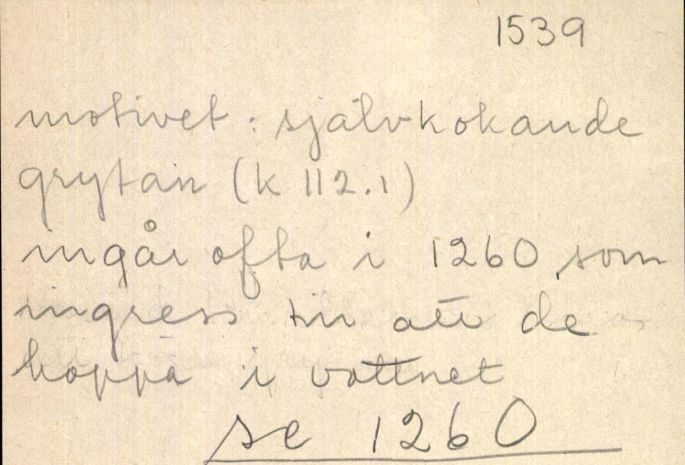 1539
motivet: självkokande
grytan (K 112.1)
ingår ofta i 1260, som
ingress till att de
hoppa i vattnet
se 1260